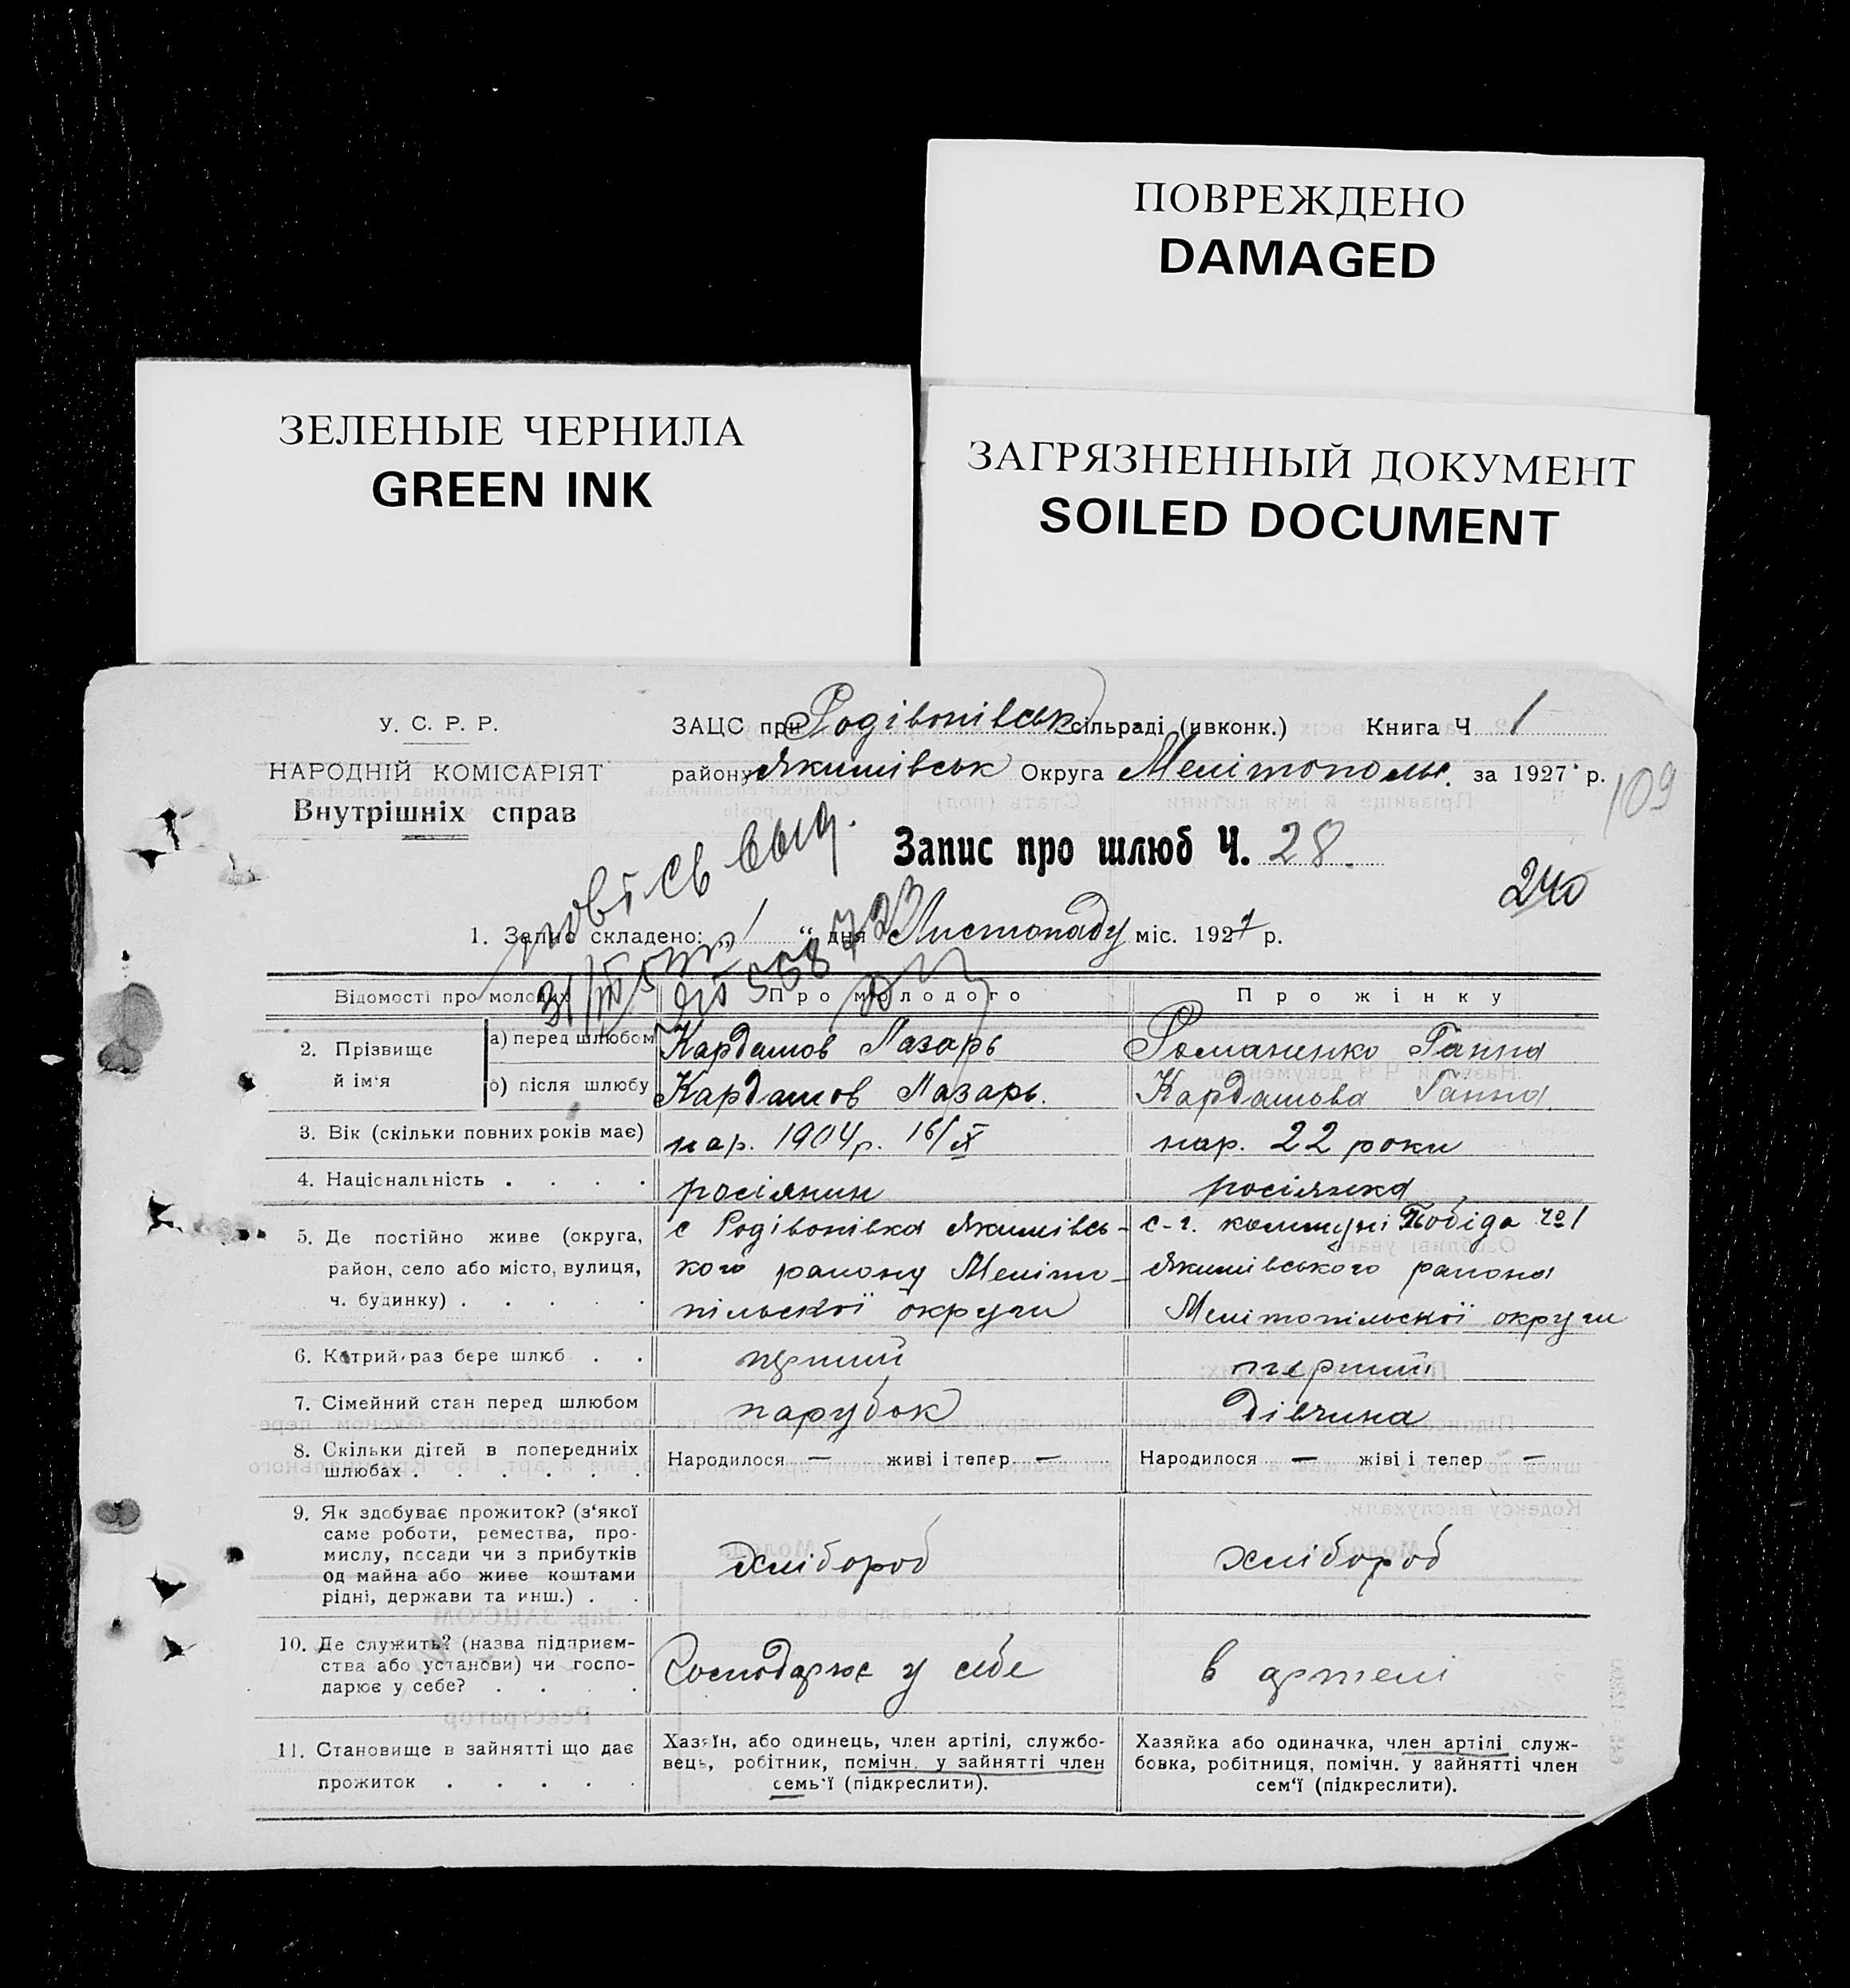 ПОВРЕЖДЕНО
DAMAGED
ЗЕЛЕНЫЕ ЧЕРНИЛА
GREEN INK
ЗАГРЯЗНЕННЫЙ ДОКУМЕНТ
SOILED DOCUMENT
У. С. Р. Р.
НАРОДНІЙ КОМІСАРІЯТ
Внутрішніх справ
ЗАЦС при Родівонівськ сільраді (ивконк.) Книга Ч 1
району Якимівськ Округа Мелітополь. за 1927 р.
109
Запис про шлюб Ч. 28.
240
1. Запис складено: „ 1 “ дня Листопаду міс. 1927 р.
Відомості про молодих Про молодого Про жінку
2. Прізвище й ім'я
а) перед шлюбом Кардашов Лазарь Романенко Ганна
б) після шлюбу Кардашов Лазарь. Кардашова Ганна.
3. Вік (скільки повних років має) нар. 1904 р. 16/IX нар. 22 роки
4. Національність . . . . росіянин росіянка
5. Де постійно живе (округа, район, село або місто, вулиця, ч. будинку) . . . . .
с Родівонівка Якимівсь-
кого району Меліто-
пільскої округи
с-г. коммуні Побіда № 1
Якимівського района
Мелітопільскої округи
6. Котрий раз бере шлюб . . перший перший
7. Сімейний стан перед шлюбом парубок дівчина
8. Скільки дітей в попередниіх шлюбах . . . . . .
Народилося — живі і тепер —
Народилося — жіві і тепер —
9. Як здобуває прожиток? (з'якої
саме роботи, ремества, про-
мислу, посади чи з прибутків
од майна або живе коштами
рідні, держави та инш.) . .
хлібороб хлібороб
10. Де служить? (назва підприєм-
ства або установи) чи госпо-
дарює у себе? . . . .
Господарює у себе в артелі
11. Становище в зайнятті що дає
прожиток . . . . .
Хазяїн, або одинець, член артілі, службо-
вець, робітник, помічн. у зайнятті член
семь'ї (підкреслити).
Хазяйка або одиначка, член артілі служ-
бовка, робітниця, помічн. у зайнятті член
сем'ї (підкреслити).